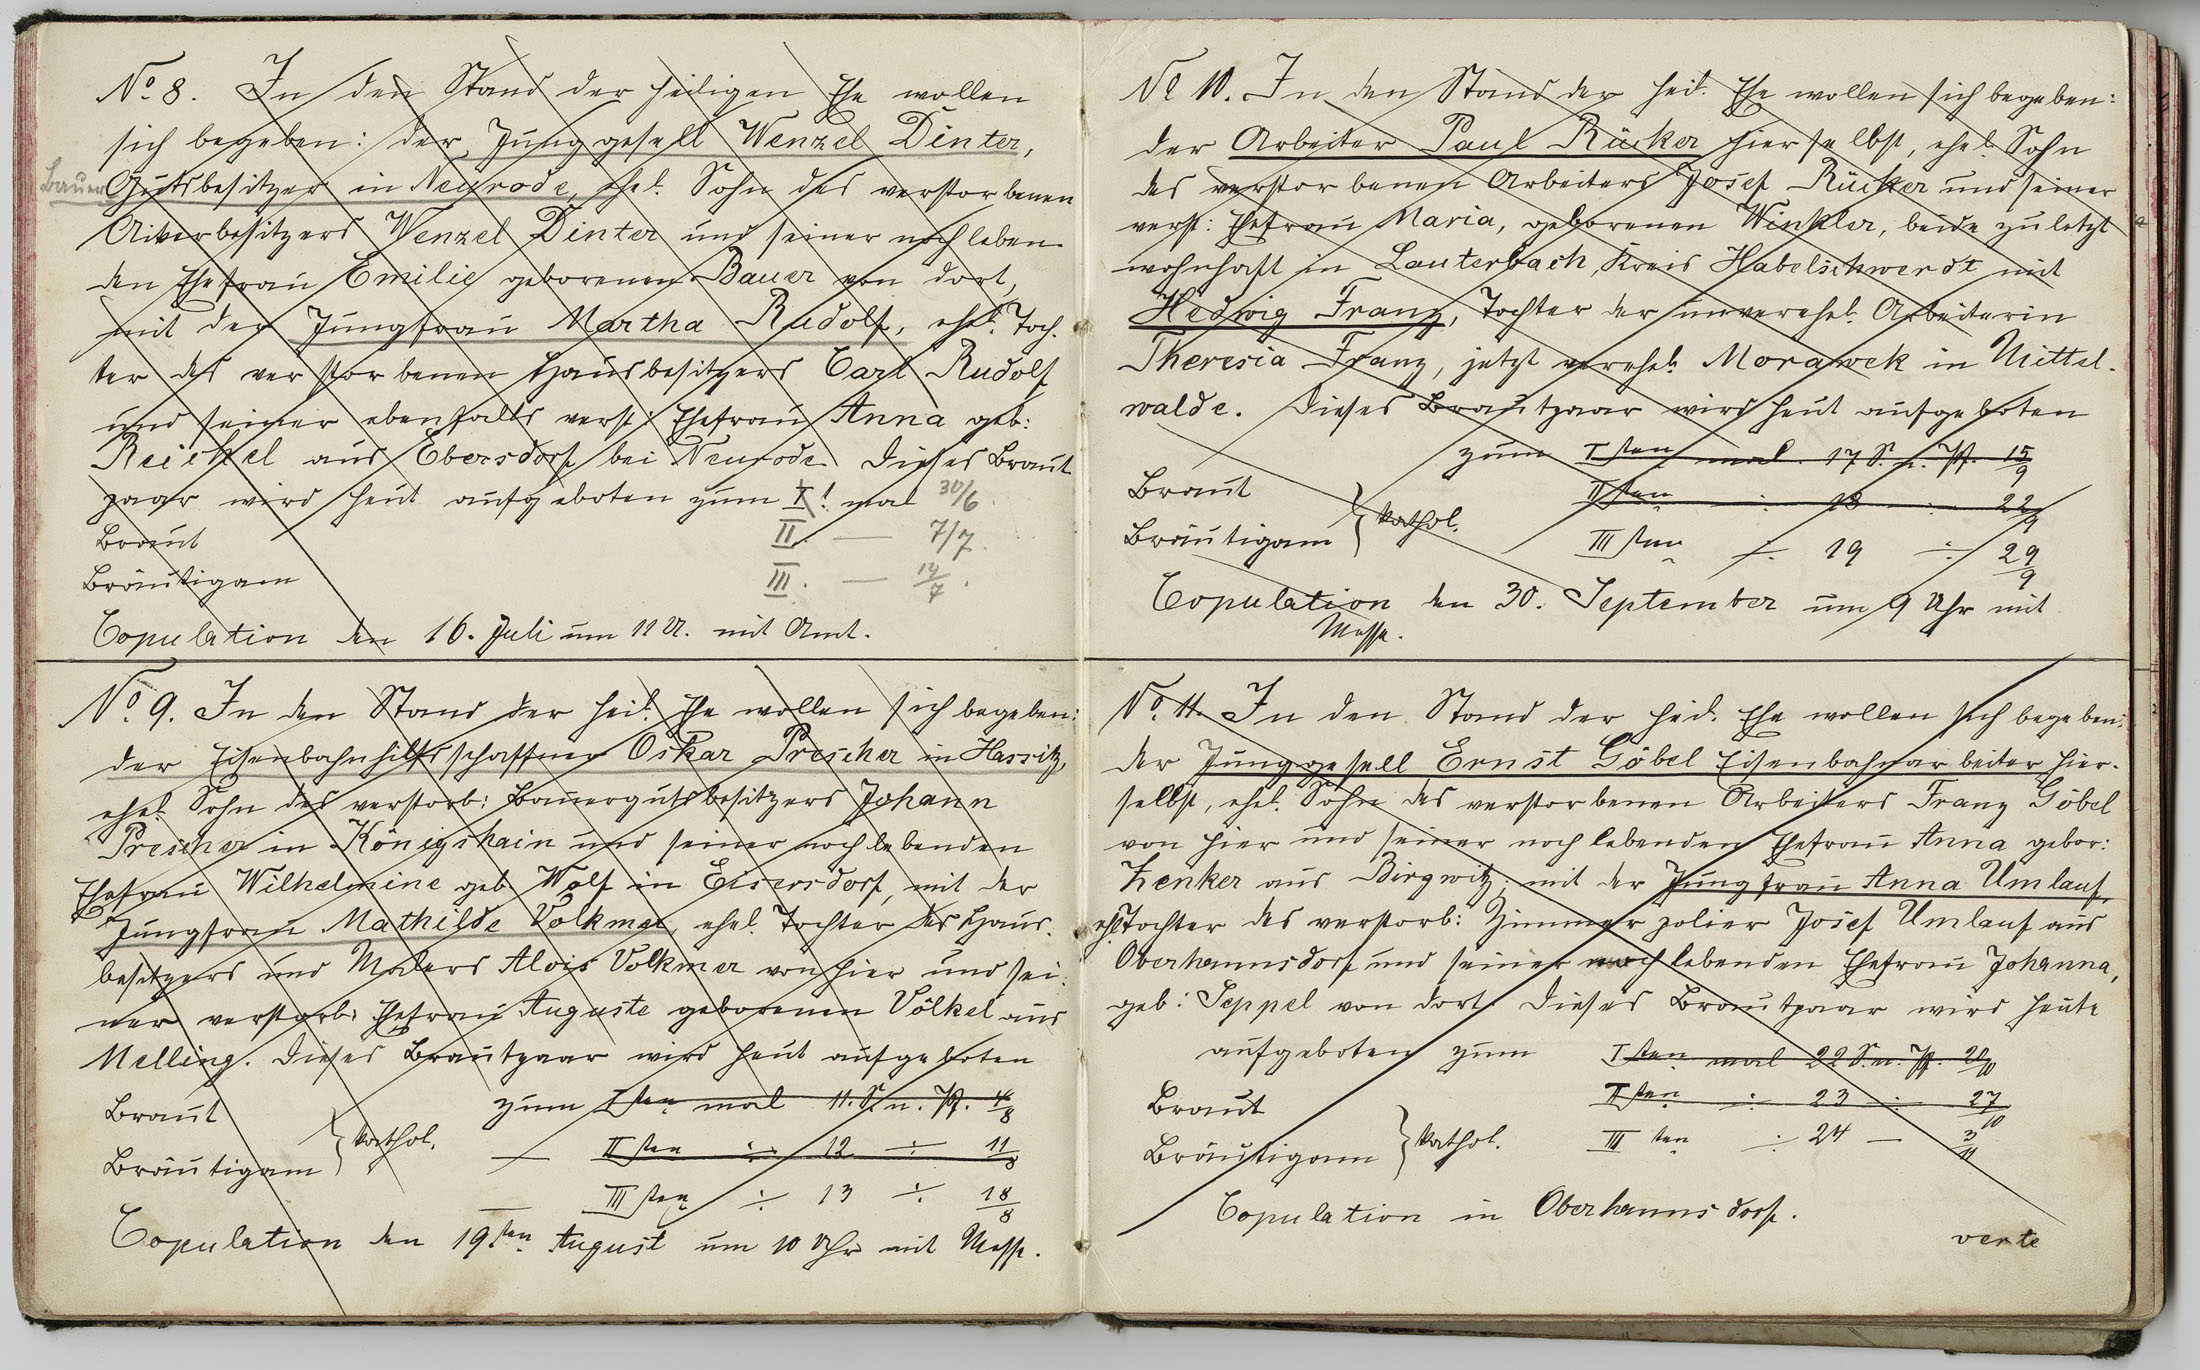 No 8. In den Stand der heiligen Ehe wollen
sich begeben: der Junggesell Wenzel Dinter,
Bauer Gutsbesitzer in Neurode, ehel. Sohn des verstorbenen
Ackerbesitzers Wenzel Dinter und seiner noch leben-
den Ehefrau Emilie geborenen Bauer von dort,
mit der Jungfrau Martha Rudolf, ehel. Toch-
ter des verstorbenen Hausbesitzers Carl Rudolf
und seiner ebenfalls verst: Ehefrau Anna geb:
Reichel aus Ebersdorf bei Neurode. Dieses Braut
paar wird heut aufgeboten zum I t mal 30/6
Braut II. — 7/7.
Bräutigam III. — 14/7.
Copulation den 16. Juli um 11 U. mit Amt.
No. 9. In den Stand der heil. Ehe wollen sich begeben:
der Eisenbahnhilfsschaffner Oskar Prescher in Hassitz,
ehel. Sohn des verstorb: Bauergutsbesitzers Johann
Prescher in Königshain und seiner noch lebenden
Ehefrau Wilhelmine geb. Wolf in Eisersdorf, mit der
Jungfrau Mathilde Volkmer, ehel. Tochter des Haus-
besitzers und Malers Alois Volkmer von hier und sei-
ner verstorb: Ehefrau Auguste geborenen Völkel aus
Melling. Dieses Brautpaar wird heut aufgeboten
zum I ten mal 11. S. n. Pf. 4/8
Braut
Bräutigam } kathol. — II ten ÷ 12 ÷ 11/8
III ten ÷ 13 ÷ 18/8
Copulation den 19ten August um 10 Uhr mit Messe.
No 10. In den Stand der heil. Ehe wollen sich begeben:
der Arbeiter Paul Rücker hierselbst, ehel. Sohn
des verstorbenen Arbeiters Josef Rücker und seiner
verst: Ehefrau Maria, geborenen Winkler, beide zuletzt
wohnhaft in Lauterbach, Kreis Habelschwerdt mit
Hedwig Franz, Tochter der unverehel. Arbeiterin
Theresia Franz, jetzt verehel. Morawek in Mittel-
walde. Dieses Brautpaar wird heut aufgeboten
zum I sten mal. 17 S. n. Pf. 15/9
Braut II ten ÷ 18 ÷ 22/9
Bräutigam } kathol. III ten ÷ 19 ÷ 29/9
Copulation den 30. September um 9 Uhr mit
Messe.
No. 11. In den Stand der heil. Ehe wollen sich begeben:
der Junggesell Ernst Göbel Eisenbahnarbeiter hier-
selbst, ehel. Sohn des verstorbenen Arbeiters Franz Göbel
von hier und seiner noch lebenden Ehefrau Anna gebor:
Zenker aus Birgwitz, mit der Jungfrau Anna Umlauf,
ehl Tochter des verstorb: Zimmerpolier Josef Umlauf aus
Oberhannsdorf und seiner noch lebenden Ehefrau Johanna,
geb: Seppel von dort. Dieses Brautpaar wird heute
aufgeboten zum I sten mal 22 S. n. Pf. 20/10
Braut II ten ÷ 23 ÷ 27/10
Bräutigam } kathol. III ten ÷ 24 — 3/11
Copulation in Oberhannsdorf.
verte